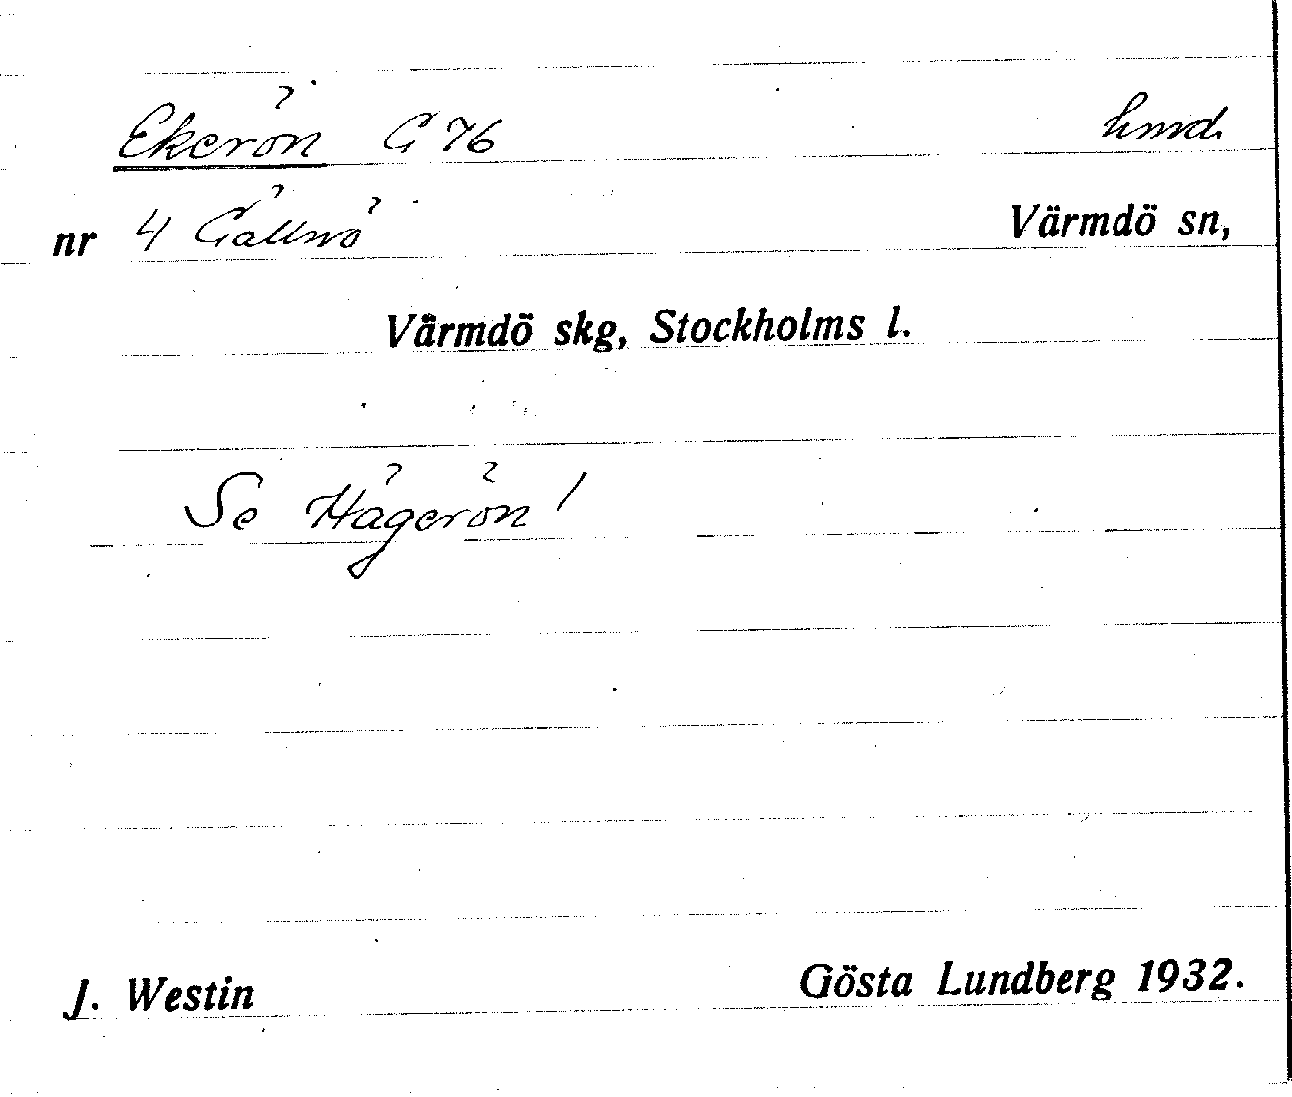 Ekerön G 76 hmd.
nr 4 Gällnö Värmdö sn,
Värmdö skg, Stockholms l.
Se Hägerön!
J. Westin Gösta Lundberg 1932.